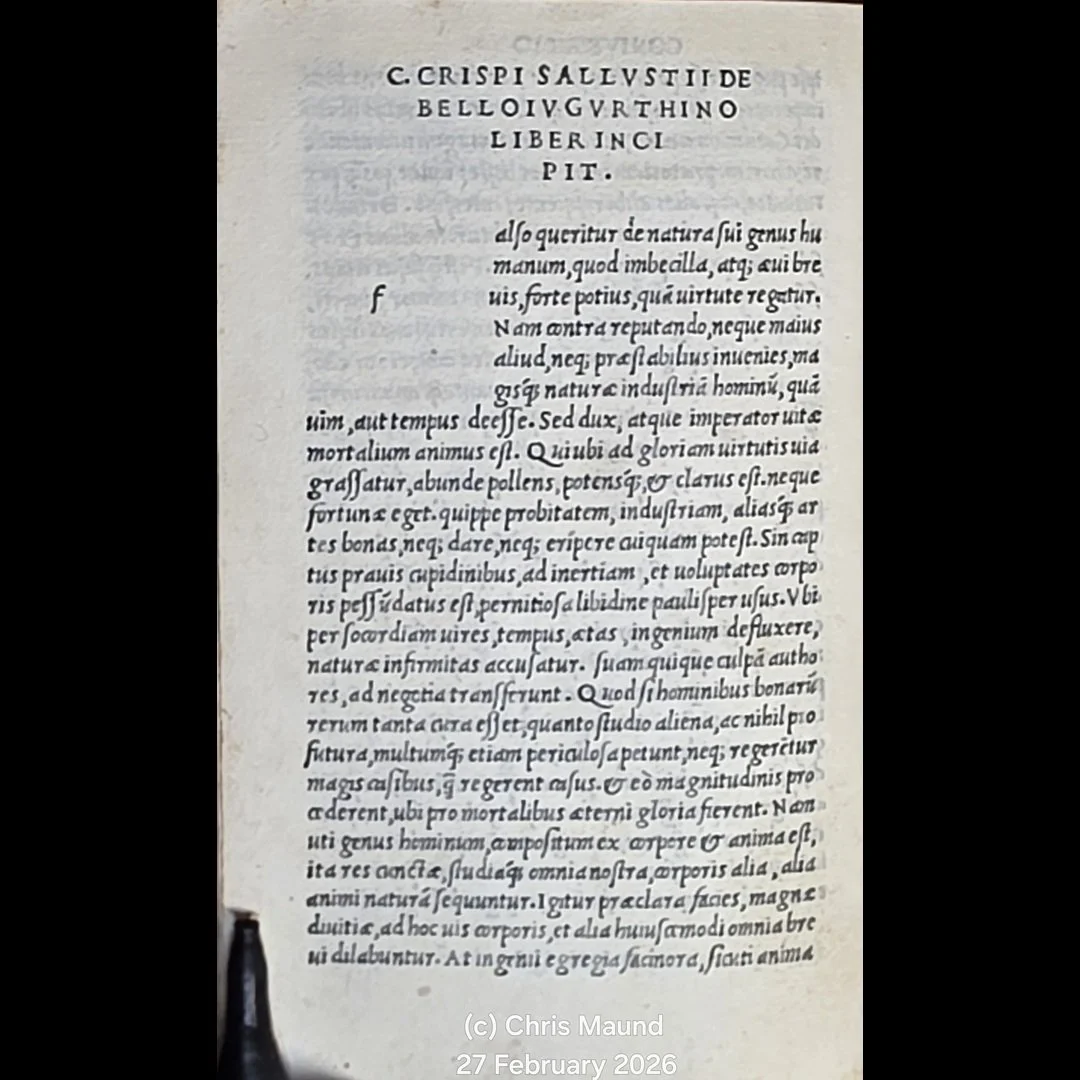 C. CRISPI SALLVSTII DE
BELLO IVGVRTHINO
LIBER INCI
PIT.
also queritur de natura sui genus hu
manum, quod imbecilla, atq; æui bre
f
uis, forte potius, quā uirtute regatur.
Nam contra reputando, neque maius
aliud, neq; præstabilius inuenies, ma
gisq́; naturæ industriā hominū, quā
uim, aut tempus deesse. Sed dux, atque imperator uitæ
mortalium animus est. Qui ubi ad gloriam uirtutis uia
grassatur, abunde pollens, potensq́;, & clarus est. neque
fortunæ eget. quippe probitatem, industriam, aliasq́; ar
tes bonas, neq; dare, neq; eripere cuiquam potest. Sin cap
tus prauis cupidinibus, ad inertiam, et uoluptates corpo
ris pessūdatus est, pernitiosa libidine paulisper usus. Vbi
per socordiam uires, tempus, ætas, ingenium defluxere,
naturæ infirmitas accusatur. suam quique culpā autho
res, ad negotia transferunt. Quod si hominibus bonarū
rerum tanta cura esset, quanto studio aliena, ac nihil pro
futura, multumq́; etiam periculosa petunt, neq; regerētur
magis casibus, q̄ regerent casus. & eò magnitudinis pro
cederent, ubi pro mortalibus æterni gloria fierent. Nam
uti genus hominum, compositum ex corpore & anima est,
ita res cunctæ, studiaq́; omnia nostra, corporis alia, alia
animi naturā sequuntur. Igitur præclara facies, magnæ
diuitiæ, ad hoc uis corporis, et alia huiuscemodi omnia bre
ui dilabuntur. At ingenii egregia facinora, sicuti anima
(c) Chris Maund
27 February 2026